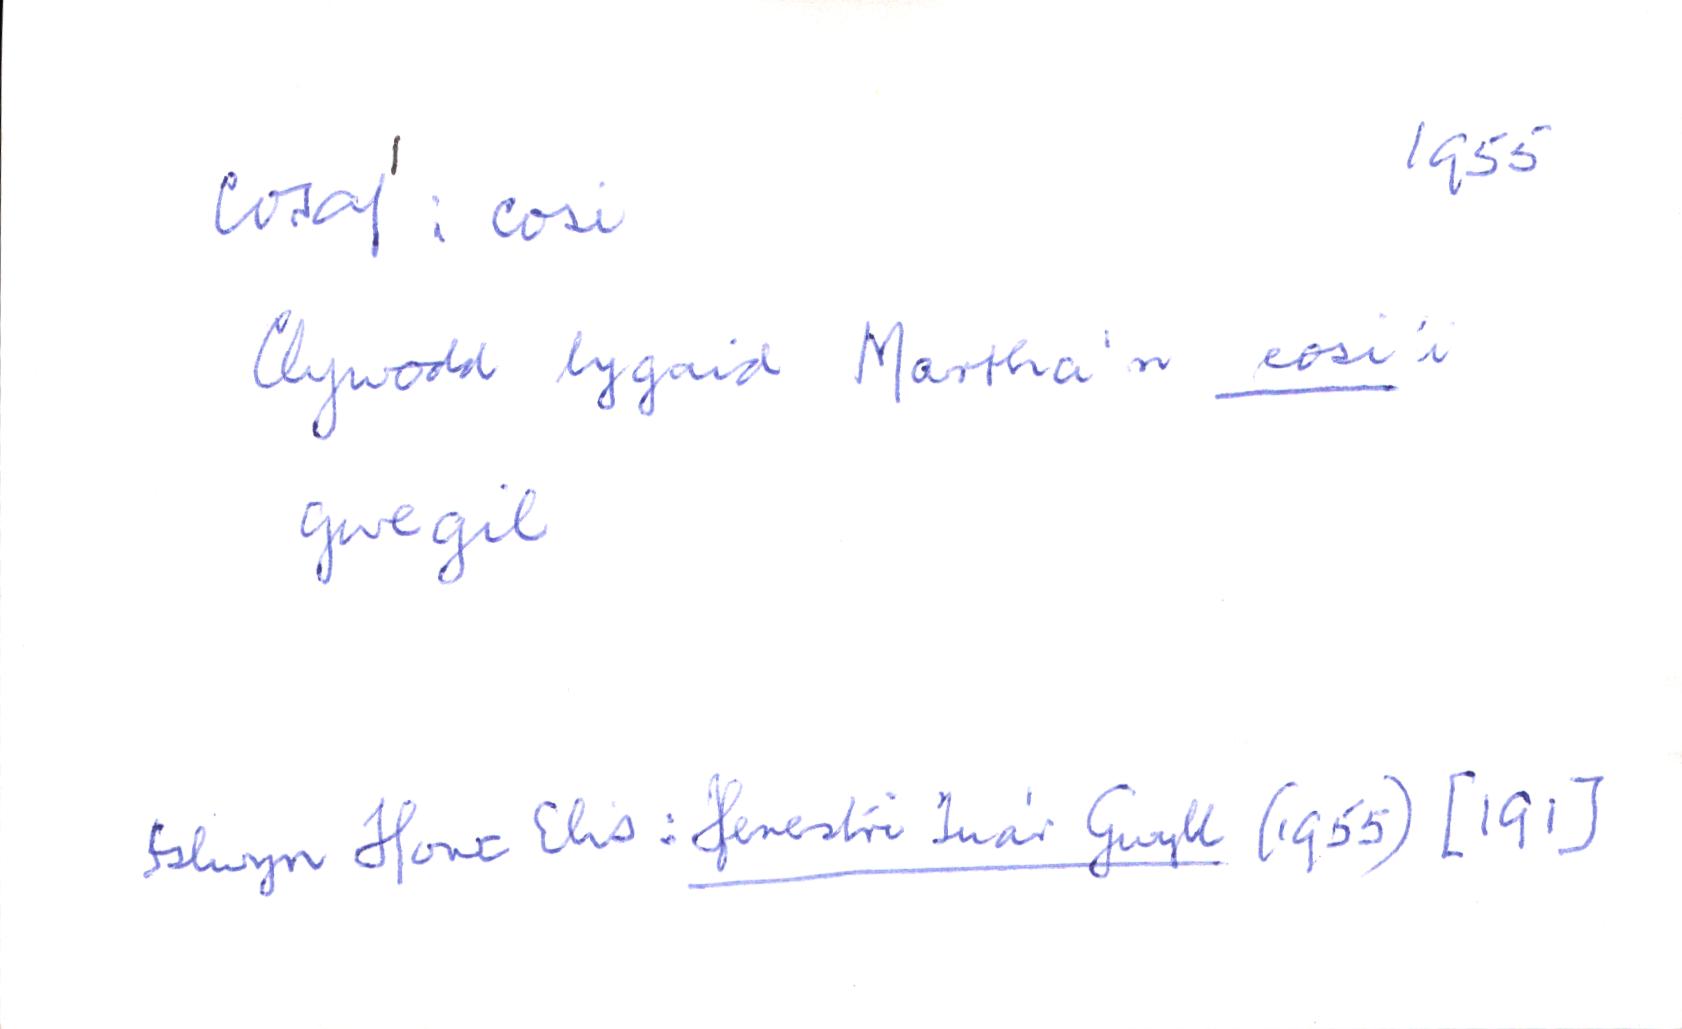 cosaf¹: cosi 1955
Clywodd lygaid Martha'n cosi'i
gwegil
Islwyn Ffowc Elis: Ffenestri Tua'r Gwyll (1955) [191]